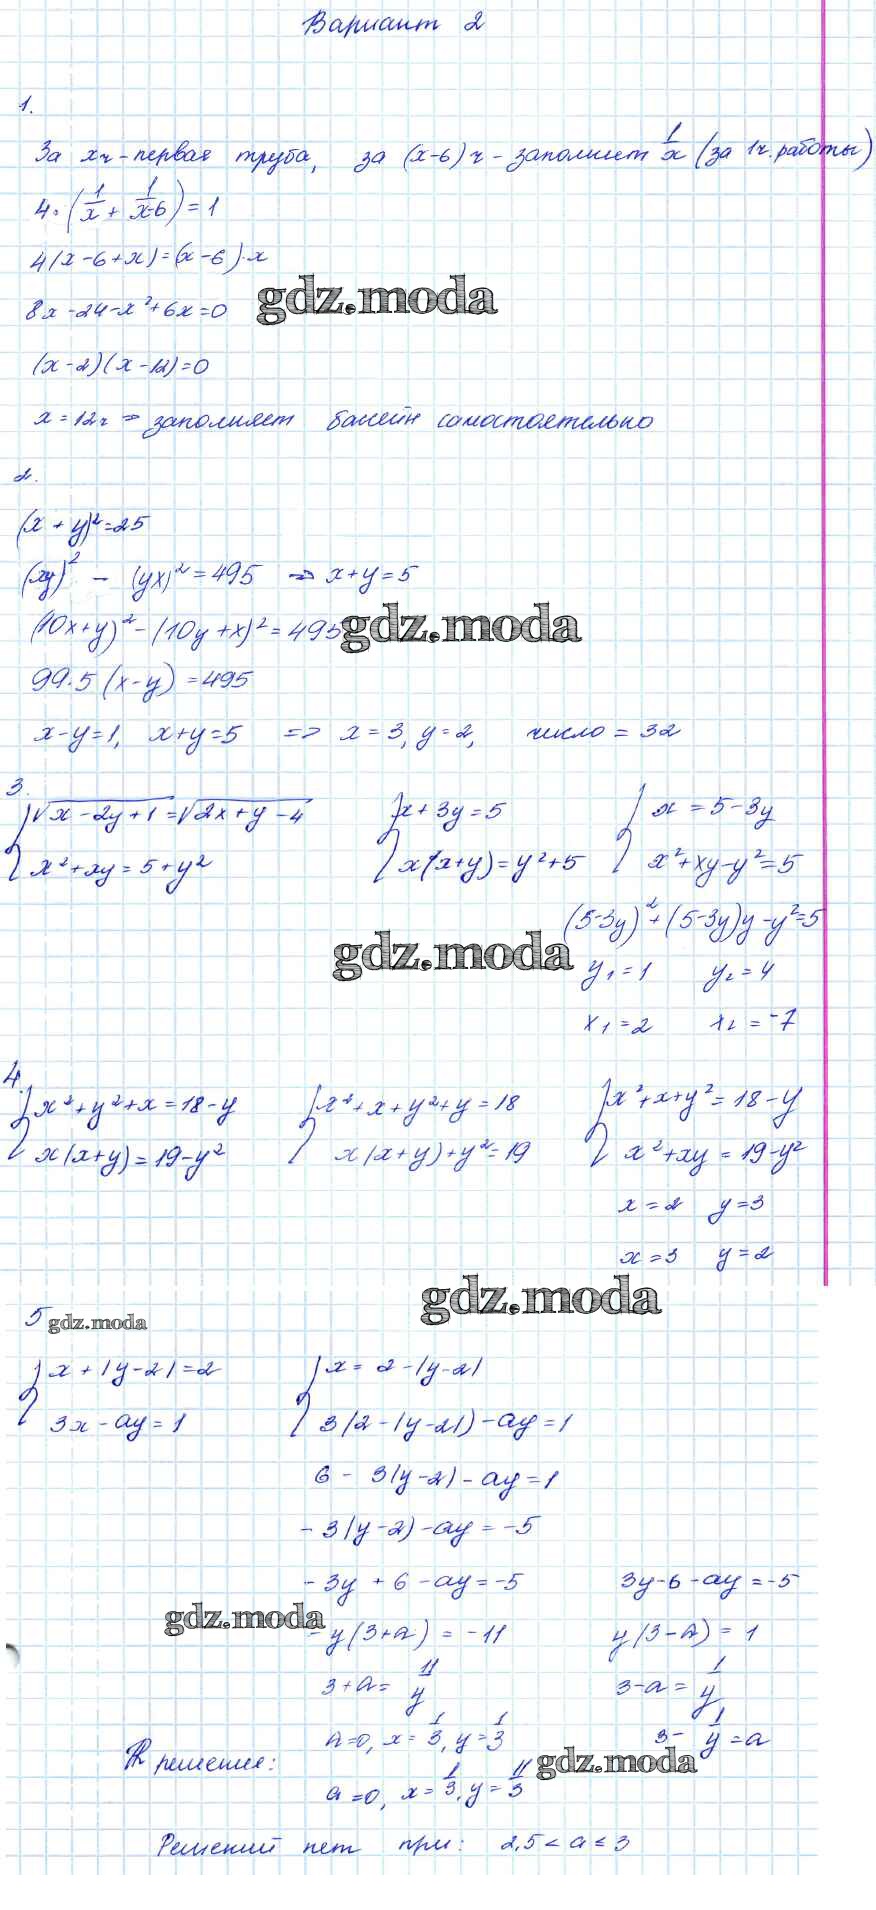 Вариант 2
1.
За xч - первая труба, за (x-6) ч - заполнит 1/x (за 1ч. работы)
4·(1/x + 1/x-6) = 1
4(x-6+x) = (x-6)·x
gdz.moda
8x-24-x²+6x=0
(x-2)(x-12)=0
x=12ч ⇒ заполняет бассейн самостоятельно
2.
(x+y)²=25
(xy)² - (yx)² = 495 ⇒ x+y=5
(10x+y)² - (10y+x)² = 495
gdz.moda
99·5(x-y) = 495
x-y=1, x+y=5 ⇒ x=3, y=2, число = 32
3.
{√x-2y+1 = √2x+y-4 {x+3y=5 {x=5-3y
x²+xy=5+y² x(x+y)=y²+5 x²+xy-y²=5
(5-3y)²+(5-3y)y-y²=5
gdz.moda
y₁=1 y₂=4
x₁=2 x₂=-7
4.
{x²+y²+x=18-y {x²+x+y²+y=18 {x²+x+y²=18-y
x(x+y)=19-y² x(x+y)+y²=19 x²+xy=19-y²
x=2 y=3
x=3 y=2
gdz.moda
5
gdz.moda
{x+|y-2|=2 {x=2-|y-2|
3x-ay=1 3(2-|y-2|)-ay=1
6-3(y-2)-ay=1
-3(y-2)-ay=-5
-3y+6-ay=-5 3y-6-ay=-5
gdz.moda
-y(3+a)=-11 y(3-a)=1
3+a=11/y 3-a=1/y
a=0, x=1/3, y=1/3 3-1/y=a
решения:
gdz.moda
a=0, x=1/3, y=11/3
Решений нет при: 2,5<a≤3